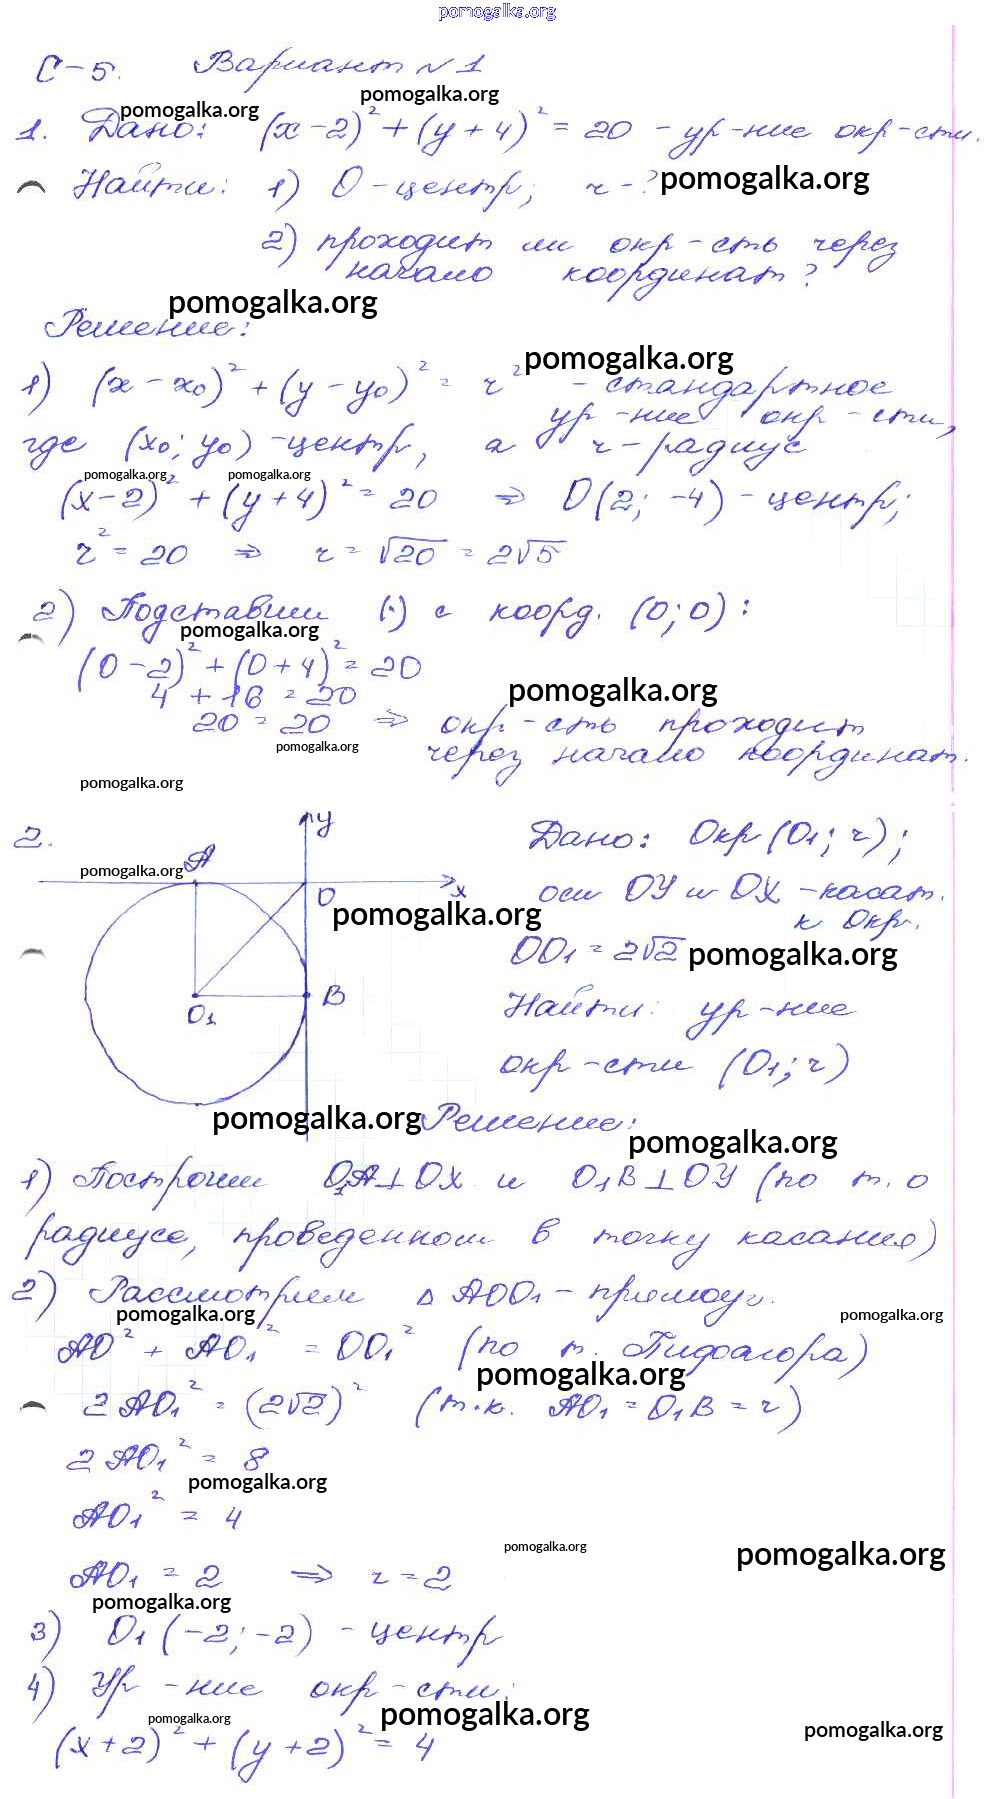 pomogalka.org
С-5. Вариант №1
pomogalka.org
pomogalka.org
1. Дано: (x-2)² + (y+4)² = 20 - ур-ние окр-сти.
Найти: 1) О-центр; r-?
pomogalka.org
2) проходит ли окр-сть через
начало координат?
pomogalka.org
Решение:
pomogalka.org
1) (x-x₀)² + (y-y₀)² = r² - стандартное
ур-ние окр-сти,
где (x₀; y₀) -центр, а r-радиус
pomogalka.org pomogalka.org
(x-2)² + (y+4)² = 20 ⇒ O(2; -4) - центр;
r² = 20 ⇒ r = √20 = 2√5
2) Подставим (·) с коорд. (0;0):
pomogalka.org
(0-2)² + (0+4)² = 20
4 + 16 = 20
pomogalka.org
20 = 20 ⇒ окр-сть проходит
через начало координат.
pomogalka.org
pomogalka.org
2.
A
y
x
O
B
O₁
pomogalka.org
pomogalka.org
Дано: Окр(O₁; r);
оси OY и OX -касат.
к Окр.
OO₁ = 2√2
pomogalka.org
Найти: ур-ние
окр-сти (O₁; r)
pomogalka.org
Решение:
pomogalka.org
1) Построим O₁A⊥OX и O₁B⊥OY (по т. о
радиусе, проведенном в точку касания)
2) Рассмотрим Δ AOO₁ - прямоуг.
pomogalka.org
pomogalka.org
AO² + AO₁² = OO₁² (по т. Пифагора)
pomogalka.org
2AO₁² = (2√2)² (т.к. AO₁ = O₁B = r)
2AO₁² = 8
pomogalka.org
AO₁² = 4
pomogalka.org
pomogalka.org
AO₁ = 2 ⇒ r = 2
pomogalka.org
3) O₁(-2; -2) - центр
4) Ур-ние окр-сти:
pomogalka.org
pomogalka.org
pomogalka.org
(x+2)² + (y+2)² = 4